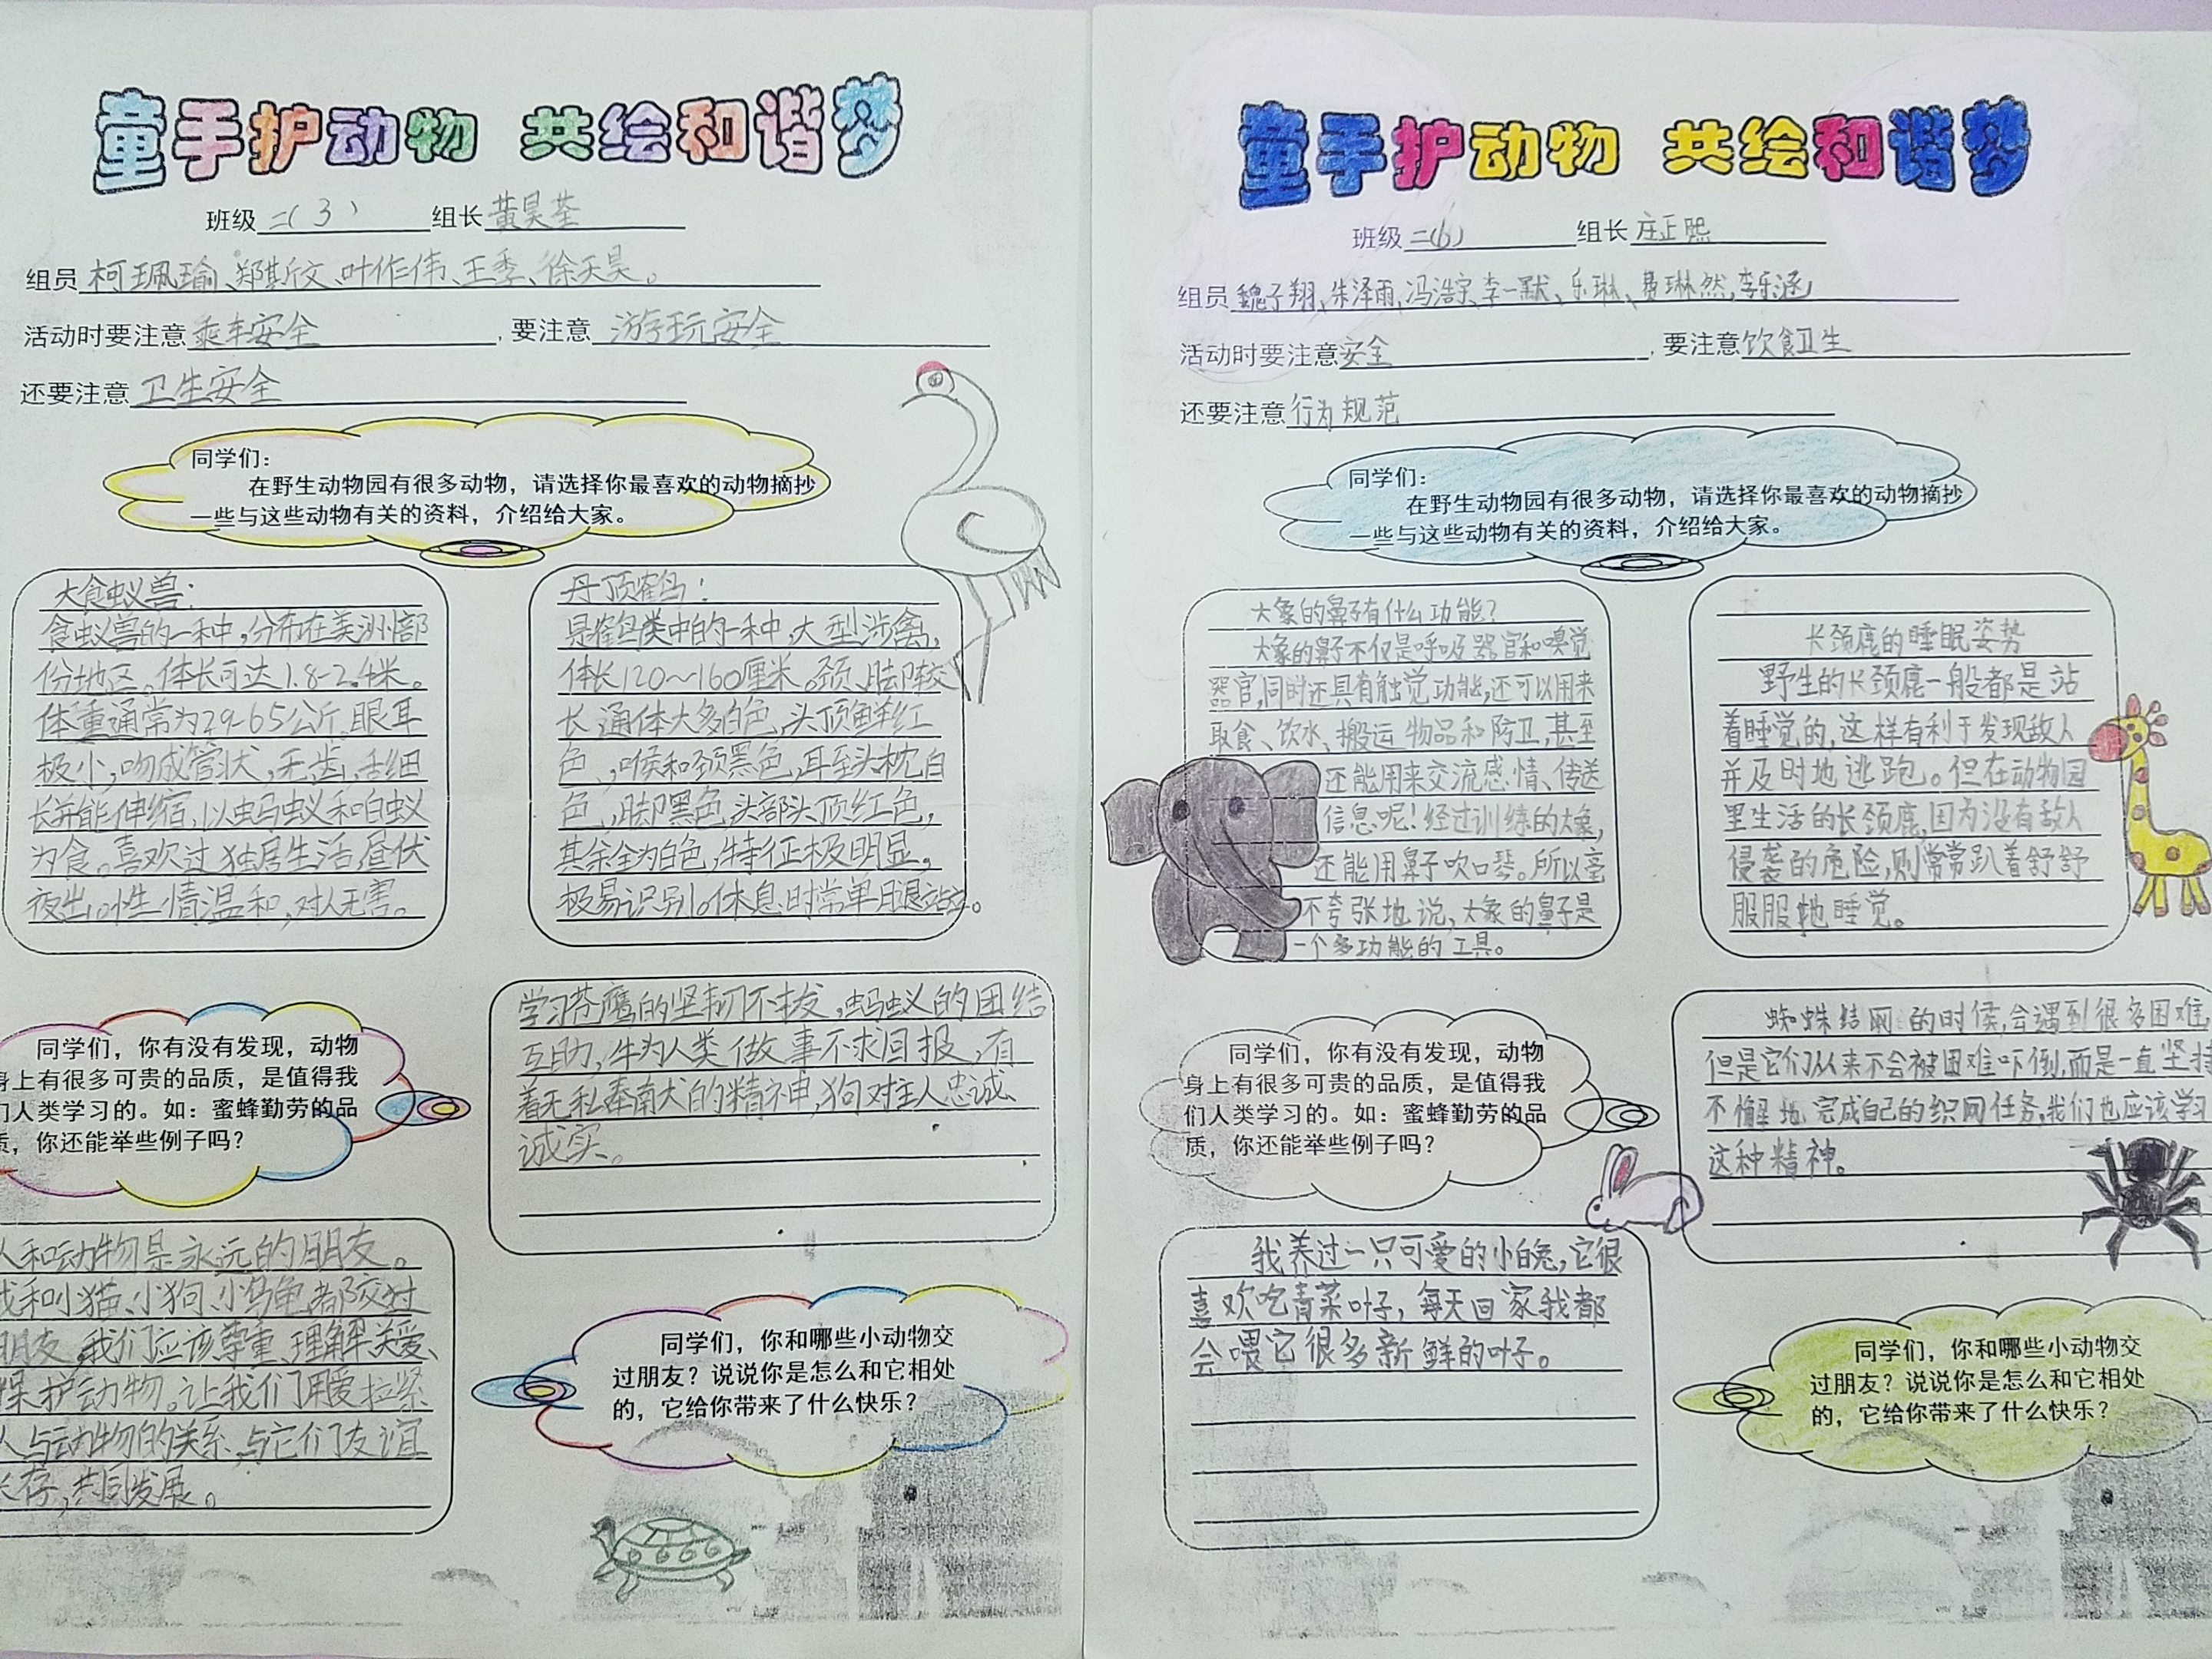 童手护动物 共绘和谐梦
班级 二(3) 组长 黄昊荃
组员 柯珮瑜、郑斯文、叶作伟、王季、徐天昊。
活动时要注意 乘车安全 ，要注意 游玩安全
还要注意 卫生安全
同学们：
在野生动物园有很多动物，请选择你最喜欢的动物摘抄
一些与这些动物有关的资料，介绍给大家。
大食蚁兽：
食蚁兽的一种，分布在美洲部
份地区。体长可达1.8-2.4米。
体重通常为29-65公斤，眼耳
极小，吻成管状，无齿，舌细
长并能伸缩，以蚂蚁和白蚁
为食。喜欢过独居生活，昼伏
夜出。性情温和，对人无害。
丹顶鹤：
是鹤类中的一种，大型涉禽，
体长120～160厘米。颈、脚较
长，通体大多白色，头顶鲜红
色，喉和颈黑色，耳至头枕白
色，脚黑色，头部头顶红色，
其余全为白色，特征极明显，
极易识别。休息时常单腿站立。
同学们，你有没有发现，动物
身上有很多可贵的品质，是值得我
们人类学习的。如：蜜蜂勤劳的品
质，你还能举些例子吗？
学习苍鹰的坚韧不拔，蚂蚁的团结
互助，牛为人类做事不求回报，有
着无私奉献的精神，狗对主人忠诚、
诚实。
人和动物是永远的朋友。
我和小猫、小狗、小乌龟都交过
朋友，我们应该尊重、理解、关爱、
保护动物。让我们用爱拉紧
人与动物的关系，与它们友谊
长存，共同发展。
同学们，你和哪些小动物交
过朋友？说说你是怎么和它相处
的，它给你带来了什么快乐？
童手护动物 共绘和谐梦
班级 二(6) 组长 庄正熙
组员 魏子翔、朱泽雨、冯浩宇、李一默、乐琳、费琳然、李乐涵
活动时要注意 安全 ，要注意 饮食卫生
还要注意 行为规范
同学们：
在野生动物园有很多动物，请选择你最喜欢的动物摘抄
一些与这些动物有关的资料，介绍给大家。
大象的鼻子有什么功能？
大象的鼻子不仅是呼吸器官和嗅觉
器官，同时还具有触觉功能，还可以用来
取食、饮水、搬运物品和防卫，甚至
还能用来交流感情、传送
信息呢！经过训练的大象，
还能用鼻子吹口琴。所以毫
不夸张地说，大象的鼻子是
一个多功能的工具。
长颈鹿的睡眠姿势
野生的长颈鹿一般都是站
着睡觉的，这样有利于发现敌人
并及时地逃跑。但在动物园
里生活的长颈鹿，因为没有敌人
侵袭的危险，则常常趴着舒舒
服服地睡觉。
同学们，你有没有发现，动物
身上有很多可贵的品质，是值得我
们人类学习的。如：蜜蜂勤劳的品
质，你还能举些例子吗？
蜘蛛结网的时候，会遇到很多困难，
但是它们从来不会被困难吓倒，而是一直坚持
不懈地完成自己的织网任务，我们也应该学习
这种精神。
我养过一只可爱的小白兔，它很
喜欢吃青菜叶子，每天回家我都
会喂它很多新鲜的叶子。
同学们，你和哪些小动物交
过朋友？说说你是怎么和它相处
的，它给你带来了什么快乐？